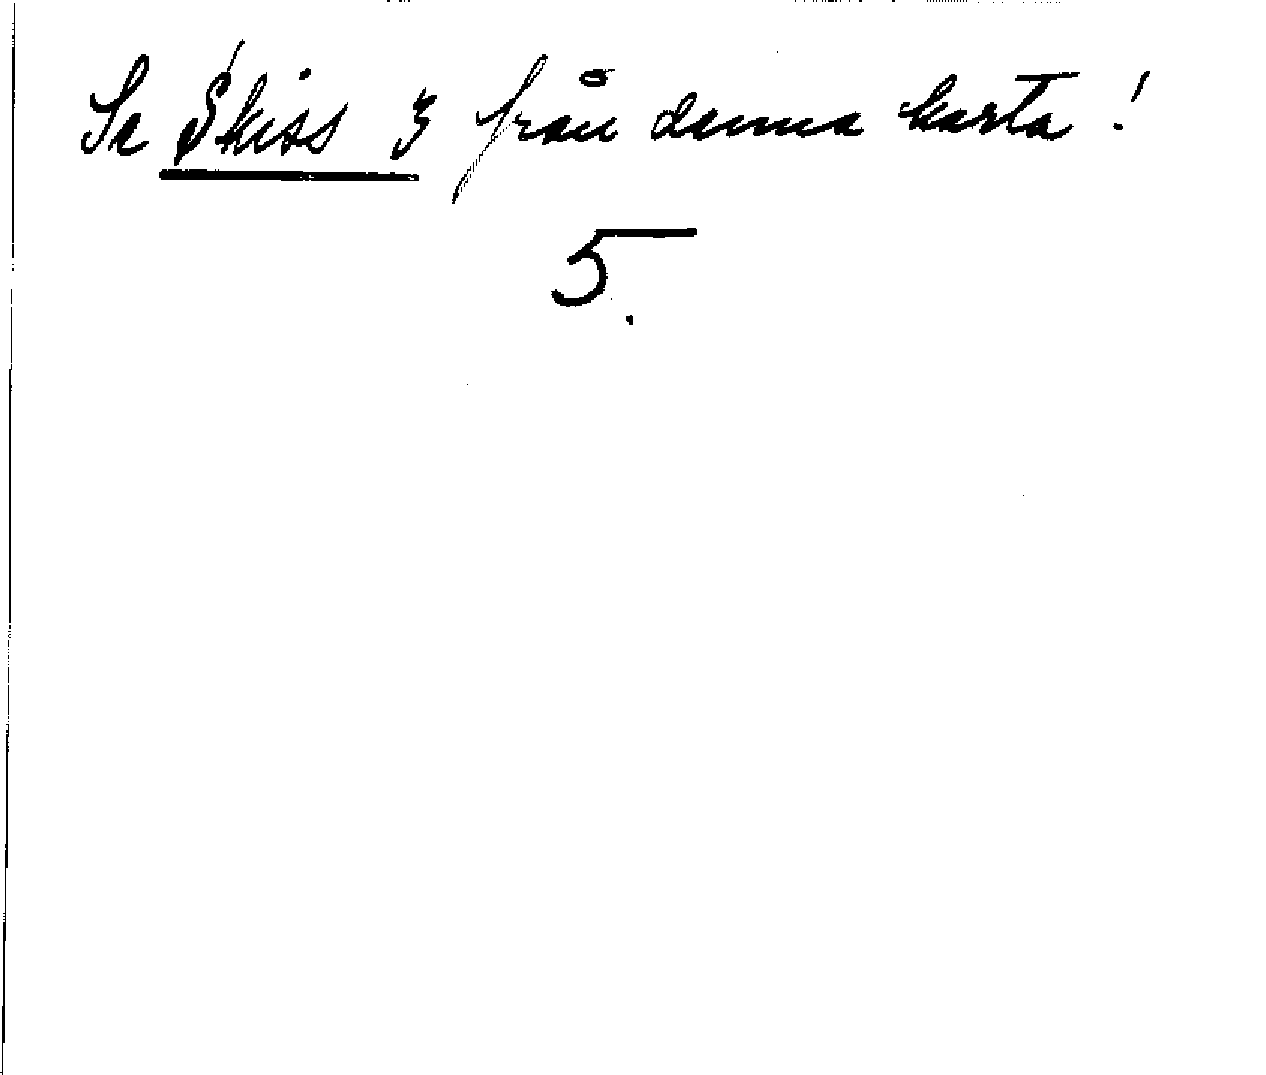 Se Skiss 3 från denna karta!
5.